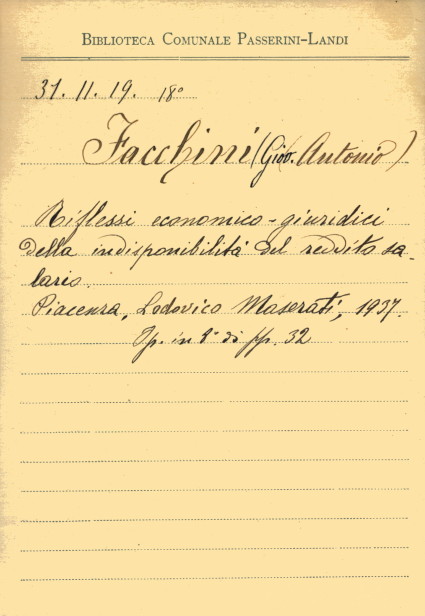 BIBLIOTECA COMUNALE PASSERINI-LANDI
31. 11. 19. 18°
Facchini (Giov. Antonio)
Riflessi economico-giuridici
della indisponibilità del reddito sa-
lario.
Piacenza, Lodovico Maserati, 1937.
Op. in 8° di pp. 32